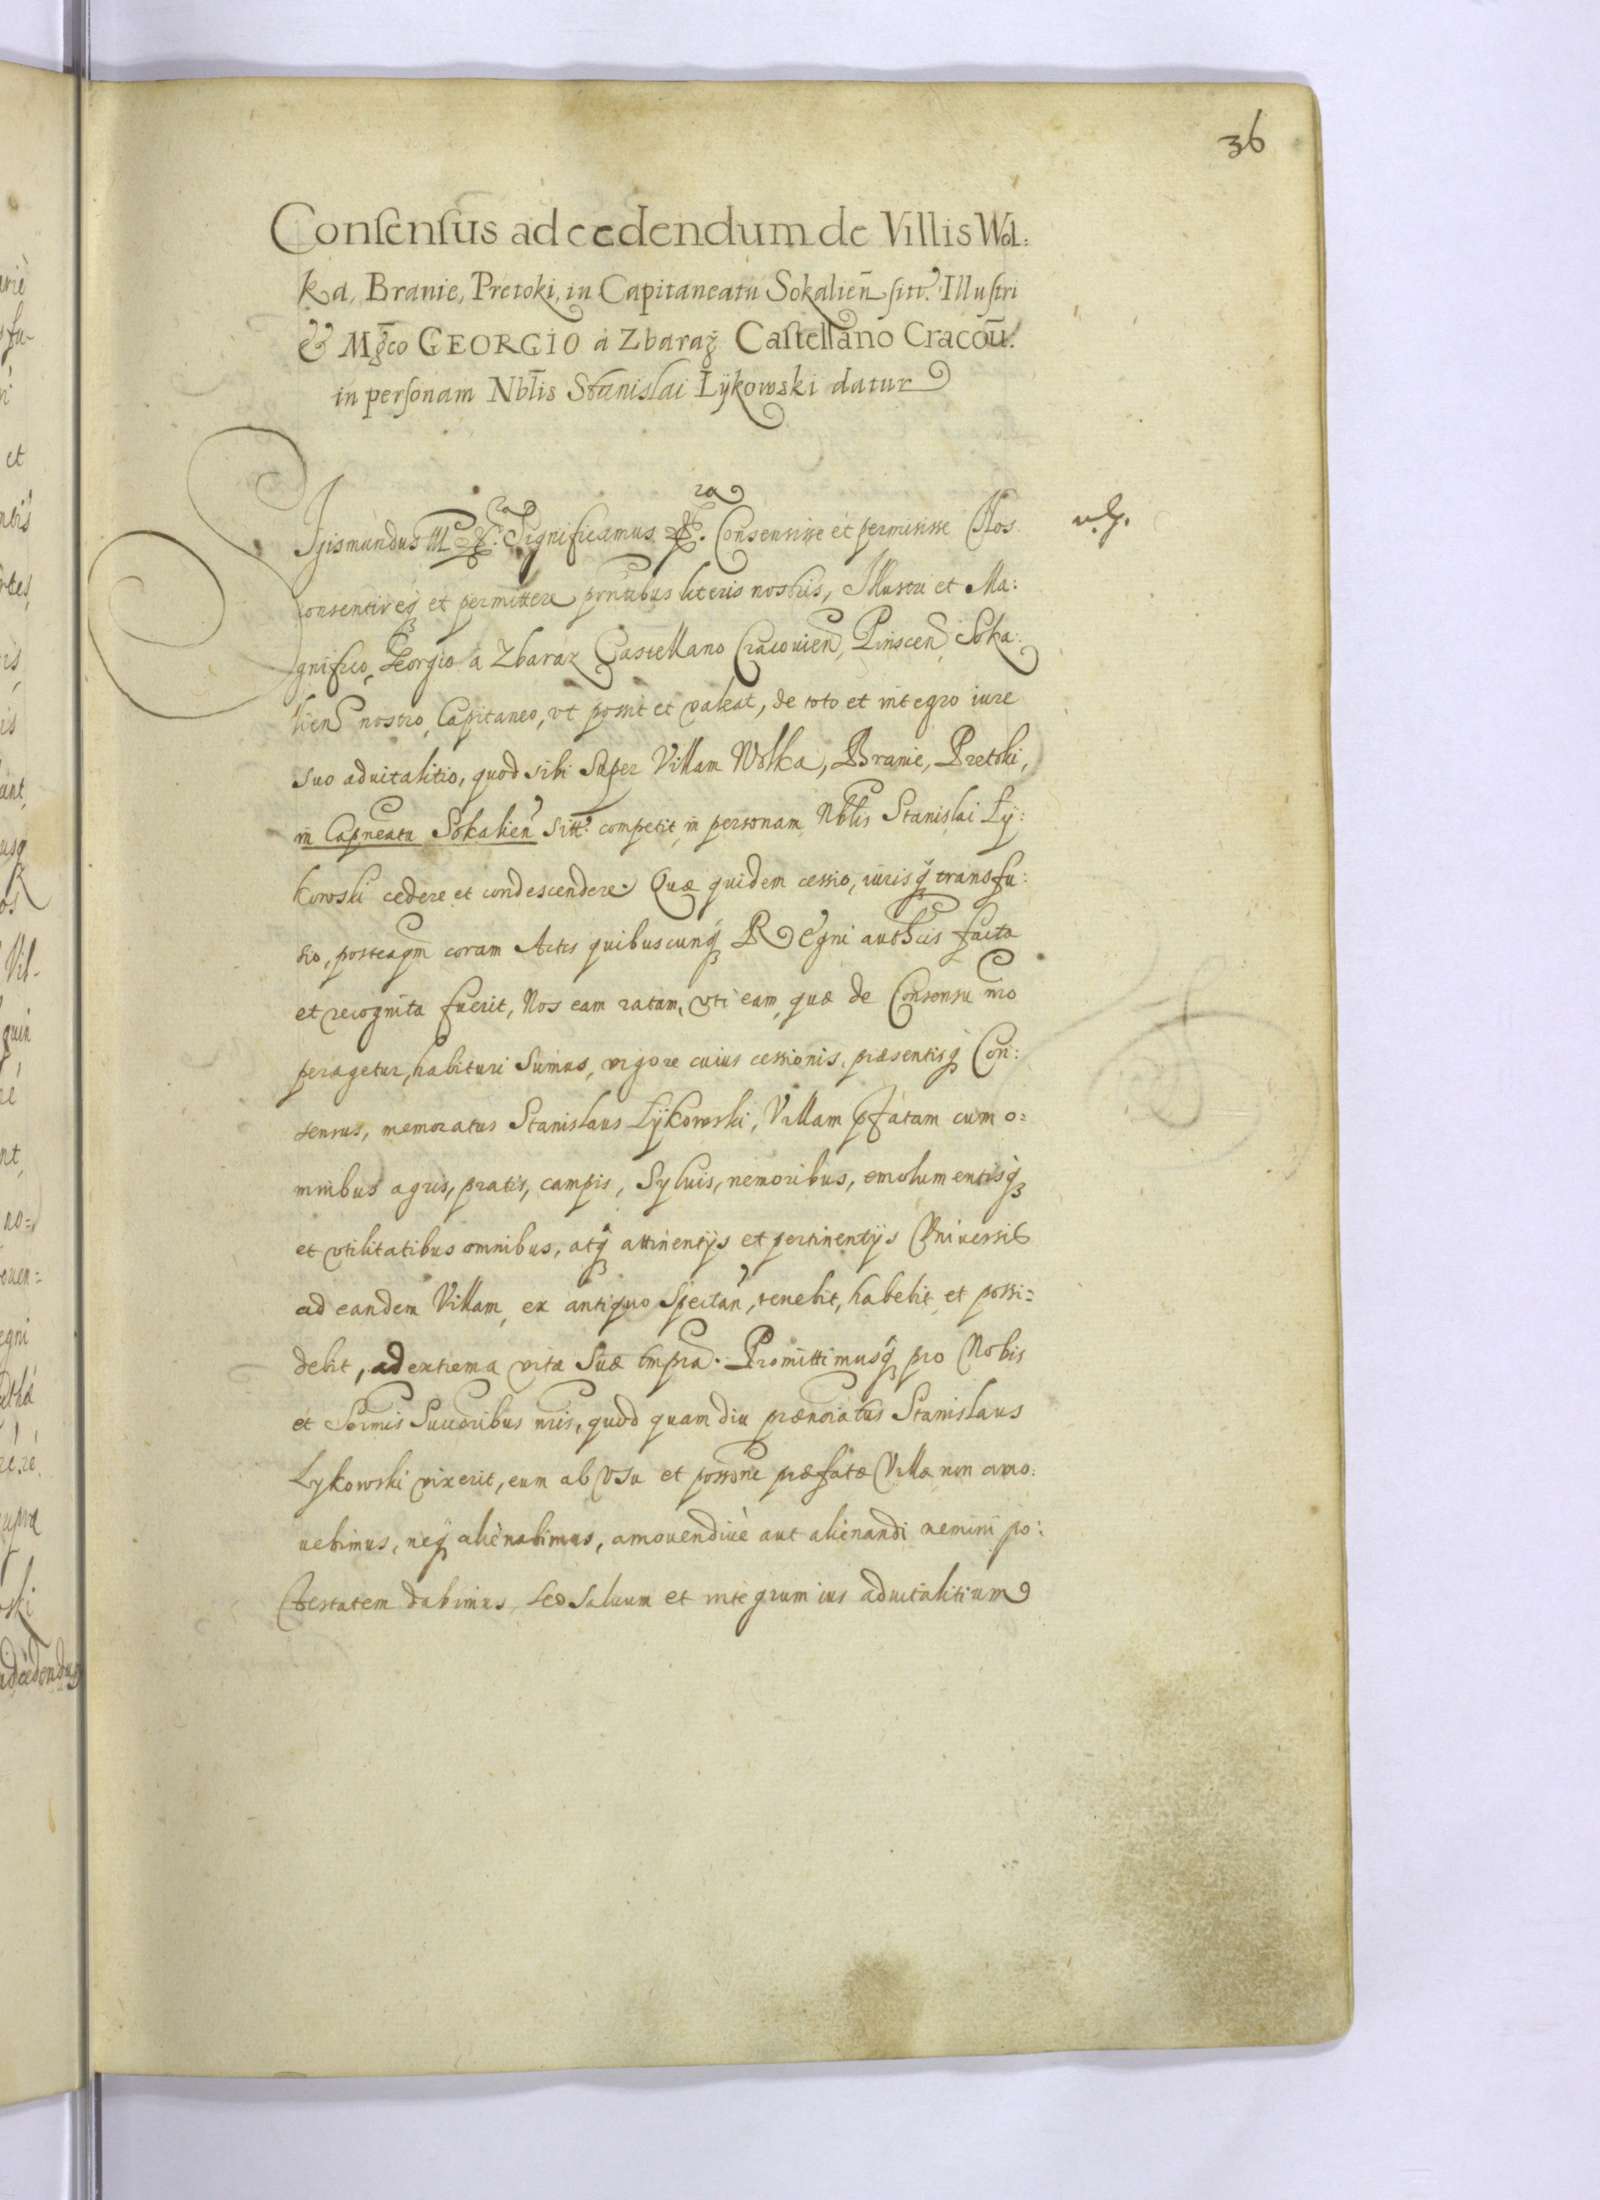 36
Consensus ad cedendum de Villis Wol:
ka, Branie, Pretoki, in Capitaneatu Sokalien̄ sitt. Illustri
& Mg̃co GEORGIO à Zbaraz Castellano Cracoū.
in personam Nbl̃is Stanislai Lÿkowski datur
Sigismundus III Significamus Consensisse et permisisse Nos.
consentireq3 et permittere pñtibus literis nostris, Illustri et Ma:
gnifico Georgio à Zbaraz Castellano Cracouien̄, Pinscen̄, Soka:
lien̄ nostro Capitaneo, vt possit et valeat, de toto et integro iure
suo aduitalitio, quod sibi super Villam Wolka, Branie, Pretoki,
in Capneatu Sokalien̄ sitt. competit in personam Nblis Stanislai Ly:
kowski cedere et condescendere. Quæ quidem cessio, iurisq3 transfu:
sio, posteaqm̃ coram Actis quibuscunq3 Regni authcis facta
et recognita fuerit, Nos eam ratam, vti eam, quæ de Consensu nr̃o
peragetur, habituri sumus, vigore cuius cessionis, præsentisq3 Con:
sensus, memoratus Stanislaus Lÿkowski, Villam pfatam cum o:
mnibus agris, pratis, campis, Syluis, nemoribus, emolumentisq3
et vtilitatibus omnibus, atq3 attinentijs et pertinentijs Vniuersis
ad eandem Villam, ex antiquo spectan̄, tenebit, habebit, et possi:
debit, ad extrema vitæ suæ tmpra. Promittimusq3 pro Nobis
et Sermis Succoribus nris, quod quam diu prænoiatus Stanislaus
Lykowski vixerit, eum ab vsu et possone præfatæ Villæ non amo:
uebimus, neq3 alienabimus, amouendiuè aut alienandi nemini po:
testatem dabimus, sed saluum et integrum ius aduitalitium